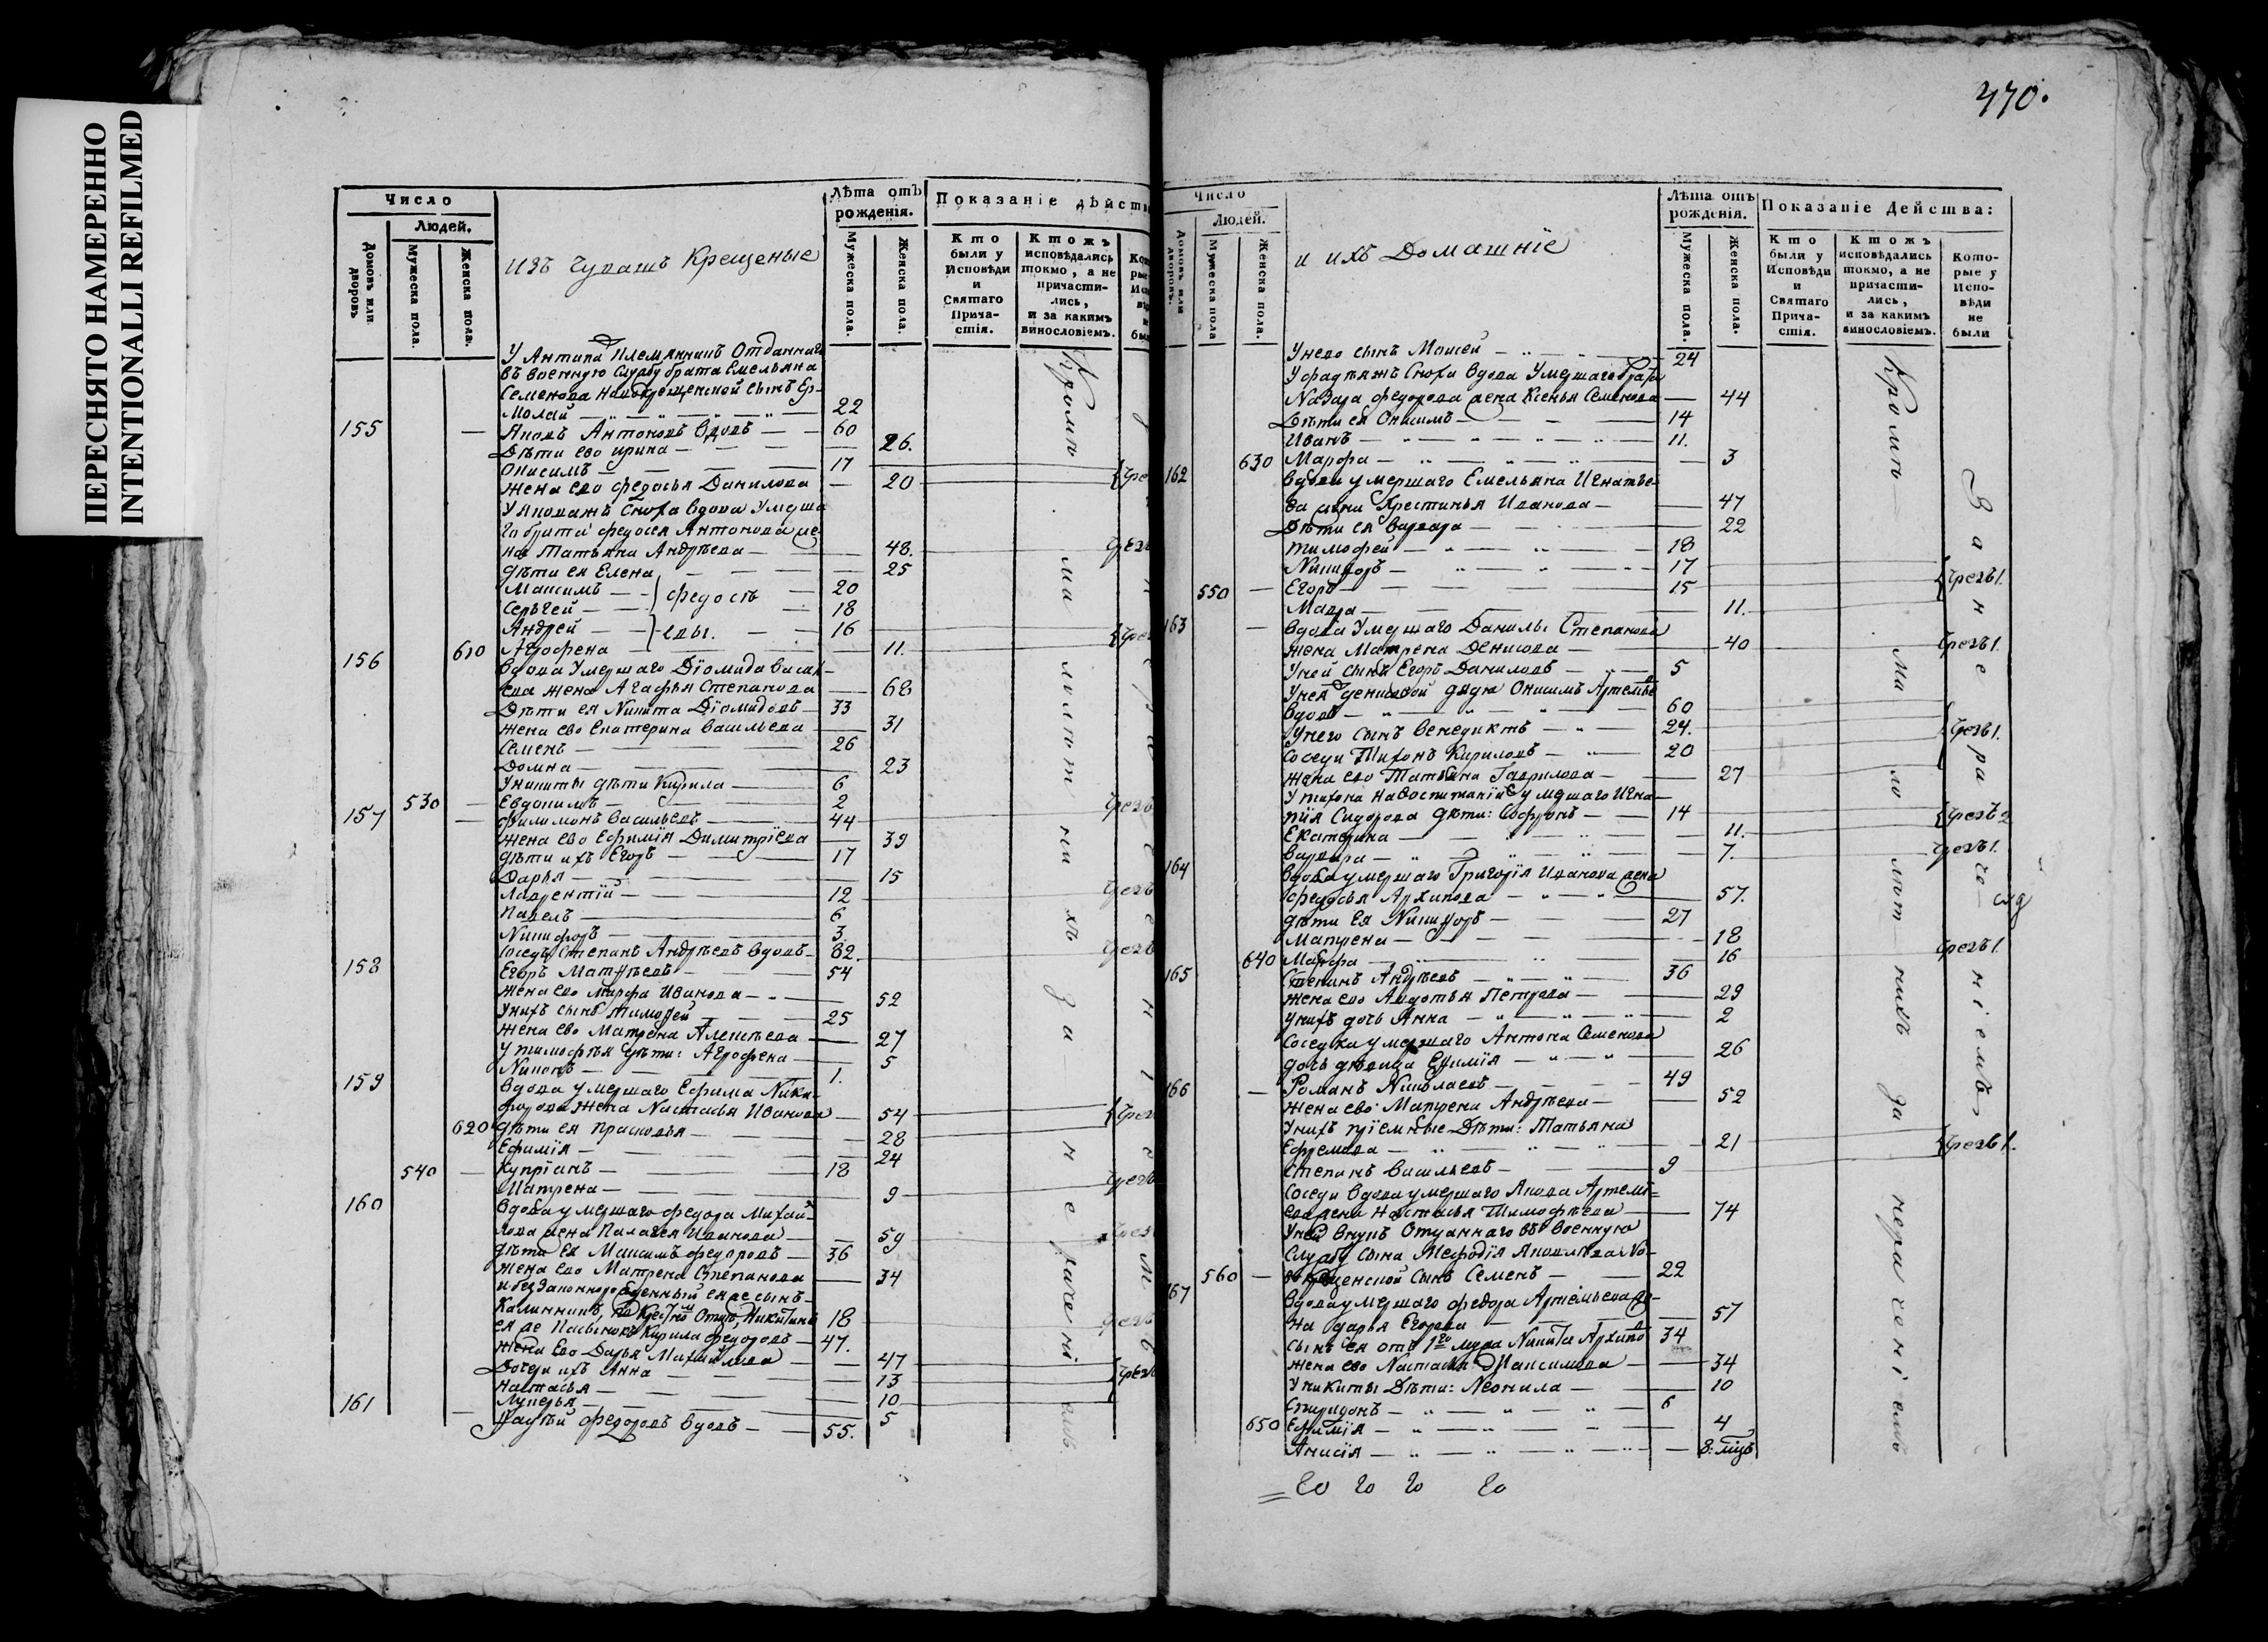 ПЕРЕСНЯТО НАМЕРЕННО
INTENTIONALLI REFILMED
470.
Число
Людей.
Домовъ или дворовъ
Мужеска пола.
Женска пола.
изъ чувашъ Крещеные
Лѣта отъ рожденія.
Мужеска пола.
Женска пола.
Показаніе дѣйств
Кто были у Исповѣди и Святаго Прича-стія.
Ктожъ исповѣдались токмо, а не причасти-лись, и за какимъ винословіемъ.
У Антипа Племянникъ Отданнаго
въ военную Службу брата Емельяна
Семенова Новокрещенской сынъ Ер-
молай 22
155 — Яковъ Антоновъ вдовъ 60
Дѣти ево Ирина 26.
Онисимъ 17
жена ево Федосья Данилова 20
У Яковажъ Сноха вдова Умерша
го брата Федосея Антонова же-
на Татьяна Андрѣева 48.
дѣти ея Елена 25
Максимъ 20
Сергей } Федосѣ 18
Андрей } евы. 16
610 Агрофена 11.
156 вдова Умершаго Дїомида Василь-
ева жена Агафья Степанова 68
Дѣти ея Никита Дїомидовъ 33
жена ево Екатерина Васильева 31
Семенъ 26
Домна 23
У никиты дѣти Кирила 6
530 — Евдокимъ 2
157 — Филимонъ Васильевъ 44
жена ево Ефимїя Димитрїева 39
дѣти ихъ Егоръ 17
Дарья 15
Лаврентїй 12
Павелъ 6
Никифоръ 3.
Соседъ Степанъ Андрѣевъ вдовъ 82.
158 Егоръ Матвѣевъ 54
жена ево Марфа Иванова 52
Унихъ сынъ Тимофей 25
жена ево Матрена Алексѣева 27
У тимофѣя дѣти: Агрофена 5
Никонъ 1.
159 вдова умершаго Ефима Ники-
форова жена Настасья Иванова 54
620 дѣти ея Прасковья 28
Ефимїя 24
540 — Купрїанъ 18
Матрена 9
160 вдова умершаго Федора Михай-
лова жена Палагея Иванова 59
дѣти ея Максимъ Федоровъ 36
жена ево Матрена Степанова 34
и беззаконнорожденный ея же сынъ
Калинникъ, по Крестно Отцу, Никитинъ 18
ея же Пасынокъ Кирила Федоровъ 47.
жена Ево Дарья Михайлова 47
Дочери ихъ Анна 13
Настасья 10
Лукерья 5
161 — Фадѣй Федоровъ вдовъ 55.
Кромѣ малолѣтнихъ за нераченіемъ
Число
Людей.
Домовъ или дворовъ.
Мужеска пола
Женска пола.
и ихъ Домашнїе
Лѣта отъ рожденія.
Мужеска пола.
Женска пола.
Показаніе Действа:
Кто были у Исповѣди и Святаго Прича-стія.
Ктожъ исповѣдались токмо, а не причасти-лись, и за какимъ винословіемъ.
Кото-рые у Испо-вѣди не были
Унево сынъ Моисей 24
У фадѣяжъ Сноха вдова Умершаго брата
Назара Федорова жена Ксенья Семенова 44
Дѣти ея Онисимъ 14
Иванъ 11.
630 Марфа 3
162 вдова умершаго Емельяна Игнатье-
ва жена Крестинья Иванова 47
Дѣти ея Варвара 22
Тимофей 18
Никифоръ 17
550 — Егоръ 15 Чрезъ 1.
Мавра 11.
163 — вдова Умершаго Данилы Степанова
жена Матрена Денисова 40 Чрезъ 1.
Уней сынъ Егоръ Даниловъ 5
Унея Денисовой дядя Онисимъ Артемье
вдовъ 60
Унего сынъ Венедиктъ 24. Чрезъ 1.
Соседи Тихонъ Кириловъ 20
жена ево Татьяна Гаврилова 27
У тихона навоспитанїи умершаго Игна-
тїя Сидорова дѣти: Софронъ 14 Чрезъ 2
Екатерина 11.
Варвара 7. Чрезъ 1.
164 вдова умершаго Григорїя Иванова жена
Федосья Архипова 57.
дѣти ея Никифоръ 27
Матрена 18
640 Марфа 16 Чрезъ 1.
165 Степанъ Андрѣевъ 36
жена ево Авдотья Петрова 29
Унихъ дочь Анна 2
Соседка умершаго Антона Семенова
дочь девица Ефимїя 26
166 — Романъ Николаевъ 49
жена ево Матрена Андрѣева 52
Унихъ прїемные Дѣти: Татьяна
Ефремова 21 Чрезъ 1.
Степанъ Васильевъ 9
Соседи вдова умершаго Якова Артемь-
ева жена Настасья Тимофѣева 74
Уней внукъ Отданнаго въ военную
Службу сына Мефодїя Яковлева Но-
560 — вокрещенской Сынъ Семенъ 22
167 вдова умершаго Федора Артемьева же-
на Дарья Егорова 57
сынъ ея отъ 1го мужа Никита Архипо 34
жена ево Настасья Максимова 34
У никиты Дѣти: Неонила 10
Спиридонъ 6
650 Ефимїя 4
Анисїя 8. мцъ
Кромѣ малолѣтнихъ за нераченіемъ
За нераченіемъ